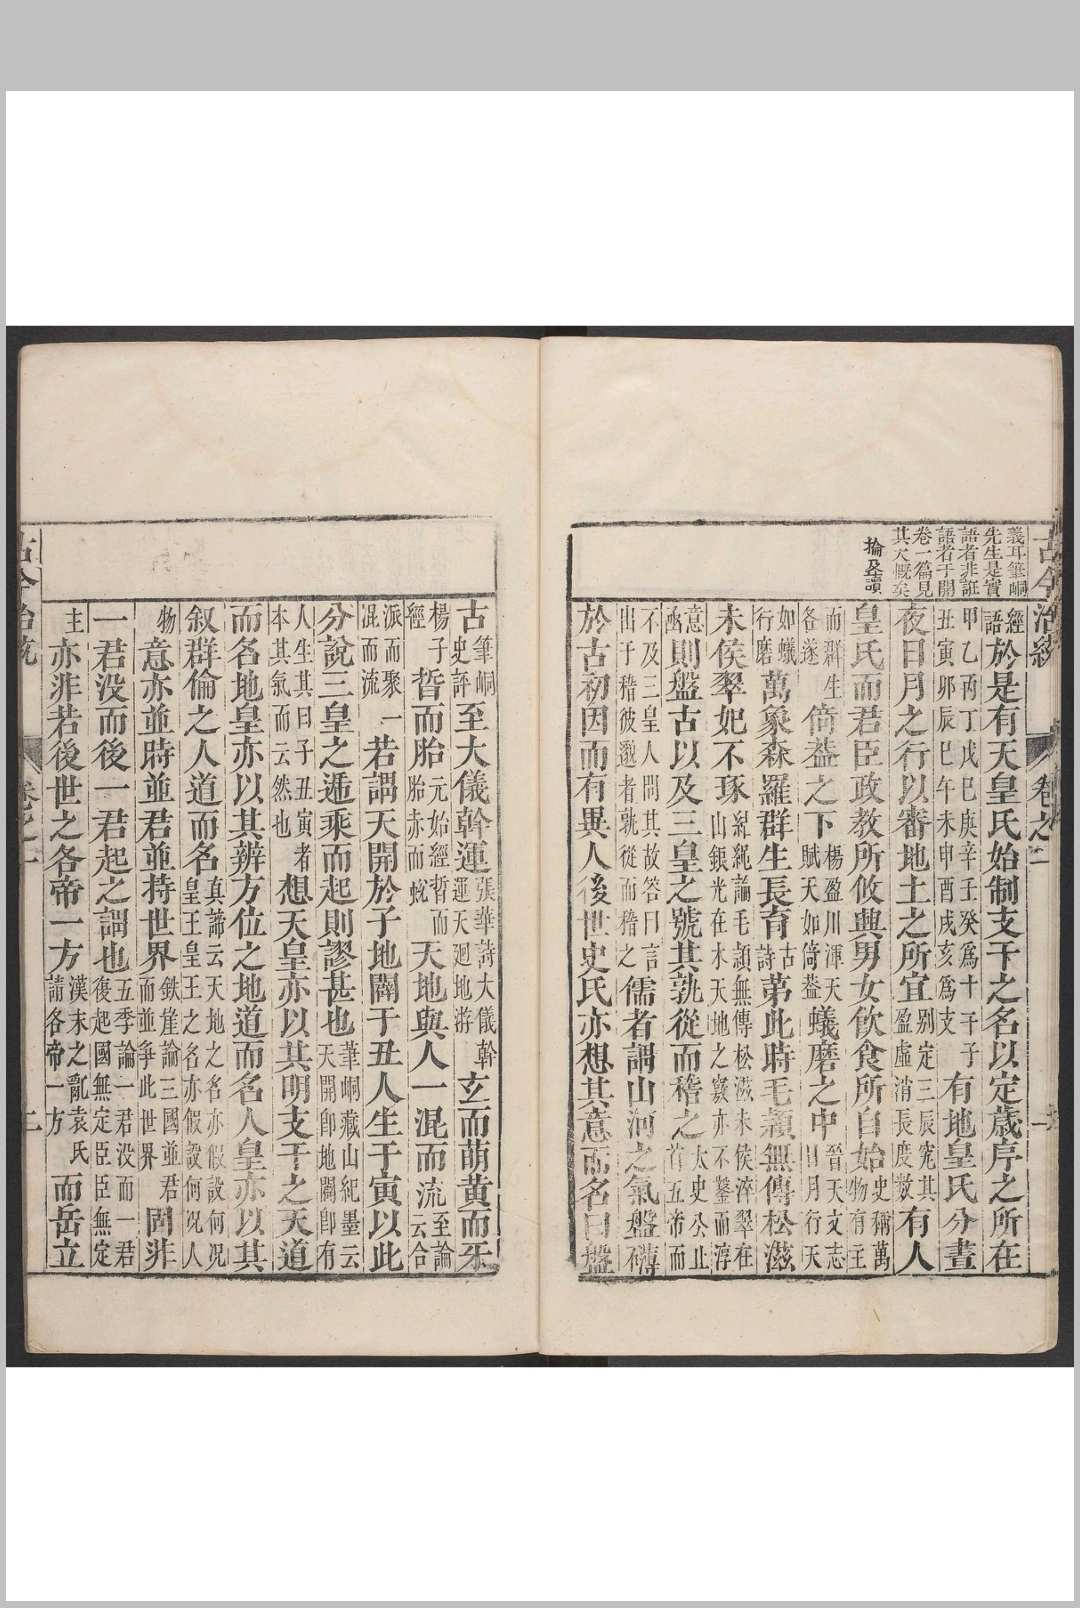 古今治統
卷之一
義耳筆峒
先生是實
語者非誑
語者于開
卷一篇見
其大慨矣
掄及讀
經語於是有天皇氏始制支干之名以定歲序之所在
甲乙丙丁戊巳庚辛壬癸為十干子丑寅卯辰巳午未申酉戌亥為支有地皇氏分晝
夜日月之行以審地土之所宜别定三辰究其盈虛消長度數有人
皇氏而君臣政教所攸興男女飲食所自始史稱萬物有主
而群生各遂倚葢之下楊盈川渾天賦天如倚葢蟻磨之中晉天文志日月行天
如蟻行磨萬象森羅群生長育古詩第此時毛頴無傳松滋
未侯翠妃不琢紀繩論毛頴無傳松滋未侯淬翠在山鋏光在木天地之竅亦不鑿而淳
意函則盤古以及三皇之號其孰從而稽之太史公止首五帝而
不及三皇人問其故答曰言出于稽彼邈者孰從而稽之儒者謂山河之氣盤礡
於古初因而有異人後世史氏亦想其意而名曰盤
古筆峒史評至大儀斡運張華詩大儀斡運天廻地游玄而萌黄而牙
楊子經晢而胎元始經晢而胎赤而蛻天地與人一混而流至論云合
派而聚混而流一若謂天開於子地闢于丑人生于寅以此
分說三皇之遞乘而起則謬甚也筆峒藏山紀墨云天開卽地闢卽有
人生其曰子丑寅者本其氣而云然也想天皇亦以其明支干之天道
而名地皇亦以其辨方位之地道而名人皇亦以其
叙群倫之人道而名真諦云天地之名亦假設何况皇王皇王之名亦假設何况人
物意亦並時並君並持世界鉄崖論三國並君而並爭此世界閙非
一君没而後一君起之謂也五季論一君没而一君復起國無定臣臣無定
主亦非若後世之各帝一方漢末之亂袁氏請各帝一方而岳立
古今治統
卷之一
二